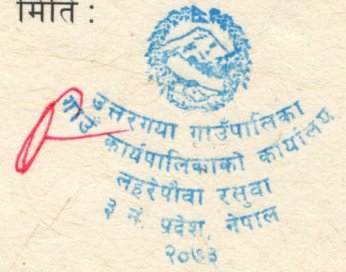 मिति :
उत्तरगया गाउँपालिका
गाउँ कार्यपालिकाको कार्यालय
लहरेपौवा रसुवा
३ नं. प्रदेश, नेपाल
२०७३